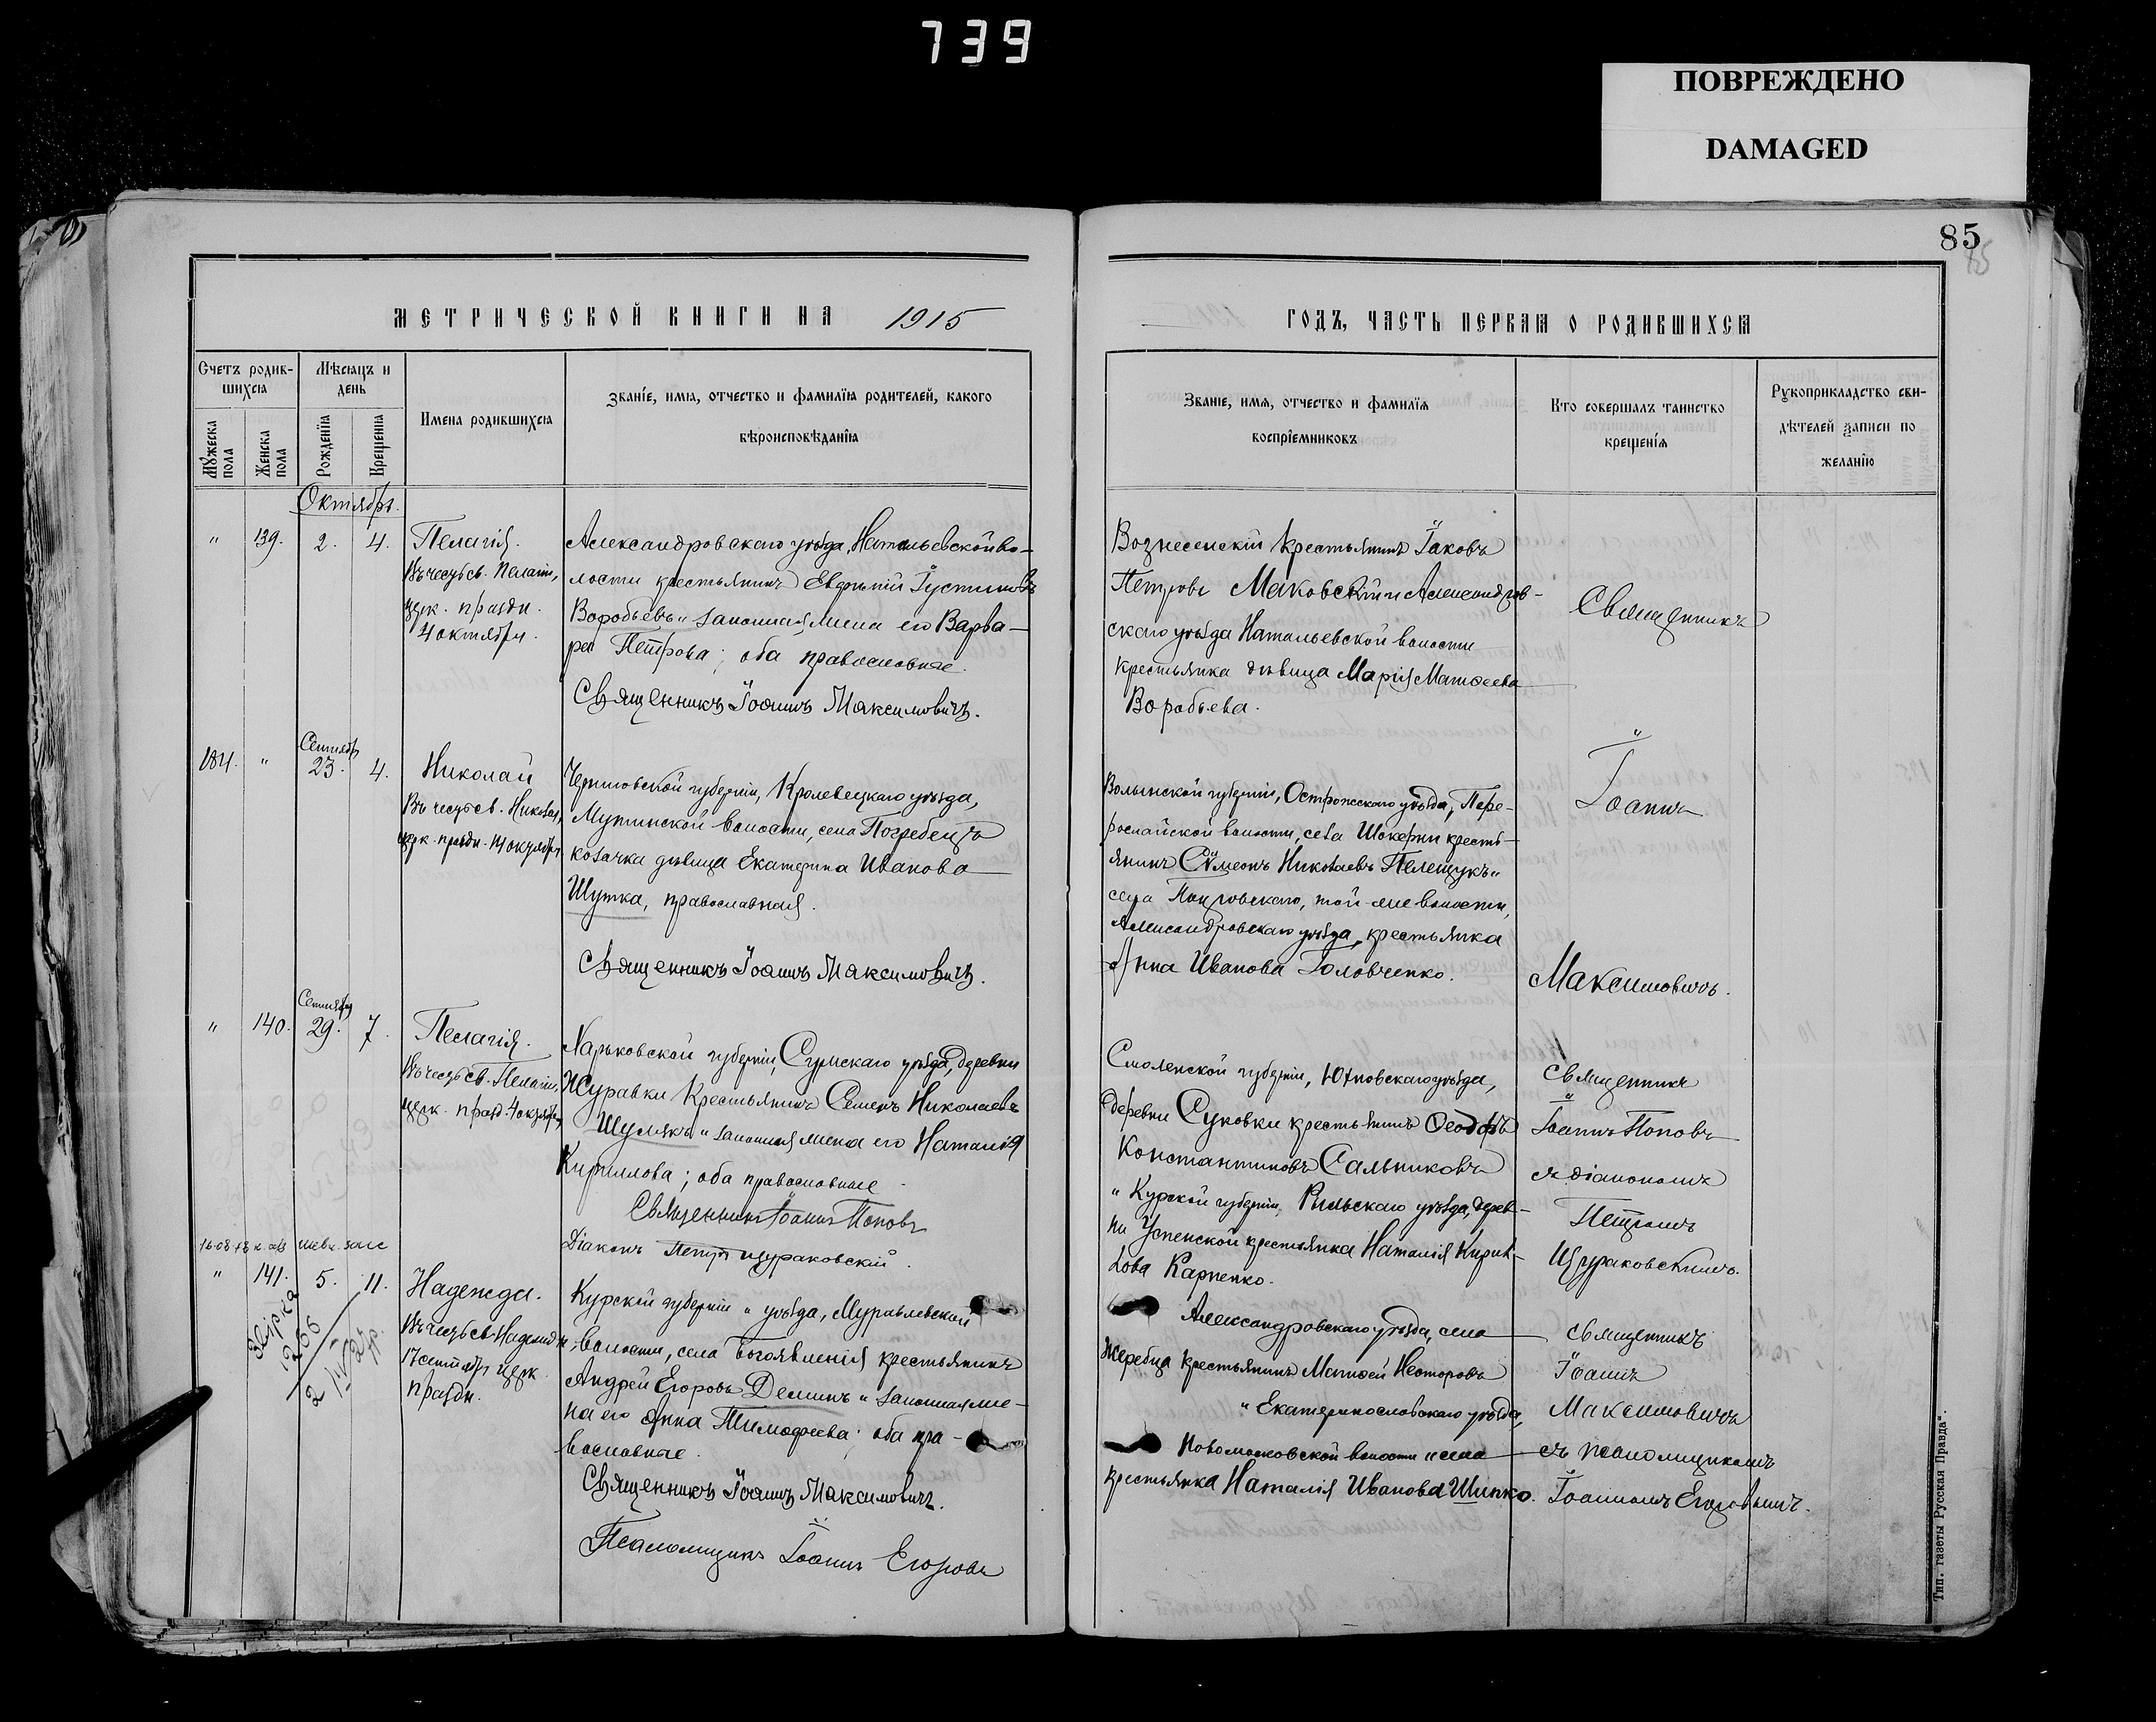 739
ПОВРЕЖДЕНО
DAMAGED
85
МЕТРИЧЕСКОЙ КНИГИ НА 1915
Счетъ родив-
шихсѧ
Мѣсѧцъ и
день
Имена родившихсѧ
Званіе, имѧ, отчество и фамилїѧ родителей, какого
вѣроисповѣданїѧ
Мужеска
пола
Женска
пола
Рожденїѧ
Крещенїѧ
Октябрь.
" 139. 2. 4.
Пелагія.
Въ честь св. Пелагіи,
церк. праздн.
4 октября.
Александровскаго уѣзда, Натальевской во-
лости крестьянинъ Евфимій Іустиновъ
Воробьевъ и законная жена его Варва-
ра Петрова; оба православные.
Священникъ Іоаннъ Максимовичъ.
184. " Сентябр 23. 4.
Николай
Въ честь св. Николая,
церк. праздн. 14 октября
Черниговской губерніи, Кролевецкаго уѣзда,
Мутинской волости, села Погребецъ
козачка дѣвица Екатерина Иванова
Шутка, православная.
Священникъ Іоаннъ Максимовичъ.
" 140. Сентября 29. 7.
Пелагія.
Въ честь св. Пелагіи,
церк. празд. 4 октября
Харьковской губерніи, Сумскаго уѣзда, деревни
Журавки крестьянинъ Семенъ Николаевъ
Шумякъ и законная жена его Наталія
Кириллова; оба православные
Священникъ Іоаннъ Поповъ
Діаконъ Петръ Щураковскій.
" 141. 5. 11.
1206
Надежда.
Въ честь св. Надежды
17 сентября церк.
праздн.
Курской губерніи " уѣзда, Муравлевской
волости, села Богоявленія крестьянинъ
Андрей Егоровъ Деминъ и законная же-
на его Анна Тимофеева; оба пра-
вославные.
Священникъ Іоаннъ Максимовичъ.
Псаломщикъ Іоаннъ Егоровъ
ГОДЪ, ЧАСТЬ ПЕРВАѦ О РОДИВШИХСѦ
Званіе, имѧ, отчество и фамилїѧ
воспрїемниковъ
Кто совершалъ таинство
крещенїѧ
Рукоприкладство сви-
дѣтелей записи по
желанїю
Вознесенскій крестьянинъ Іаковъ
Петровъ Маковскій и Александров-
скаго уѣзда Натальевской волости
крестьянка дѣвица Марія Матѳеева
Воробьева.
Священникъ
Іоаннъ
Максимовичъ.
Волынской губерніи, Острожскаго уѣзда, Пере-
росляйской волости, села кресть-
янинъ Сѵмеонъ Николаевъ Пелещукъ и
села той-же волости,
Александровскаго уѣзда, крестьянка
Анна Иванова Головченко.
Смоленской губерніи, Юхновскаго уѣзда,
деревни Суковки крестьянинъ Ѳеодоръ
Константиновъ Сальниковъ
и Курской губерніи, Рыльскаго уѣзда, дерев-
ни Успенской крестьянка Наталія Кирил-
лова Карпенко.
Священникъ
Іоаннъ Поповъ
съ діакономъ
Петромъ
Щураковскимъ.
Александровскаго уѣзда, села
Жеребца крестьянинъ Матѳей Несторовъ
и Екатеринославскаго уѣзда,
Новомосковской волости и села
крестьянка Наталія Иванова Шипко.
Священникъ
Іоаннъ
Максимовичъ
съ псаломщикомъ
Іоанномъ Егоровымъ.
Тип. газеты Русская Правда".